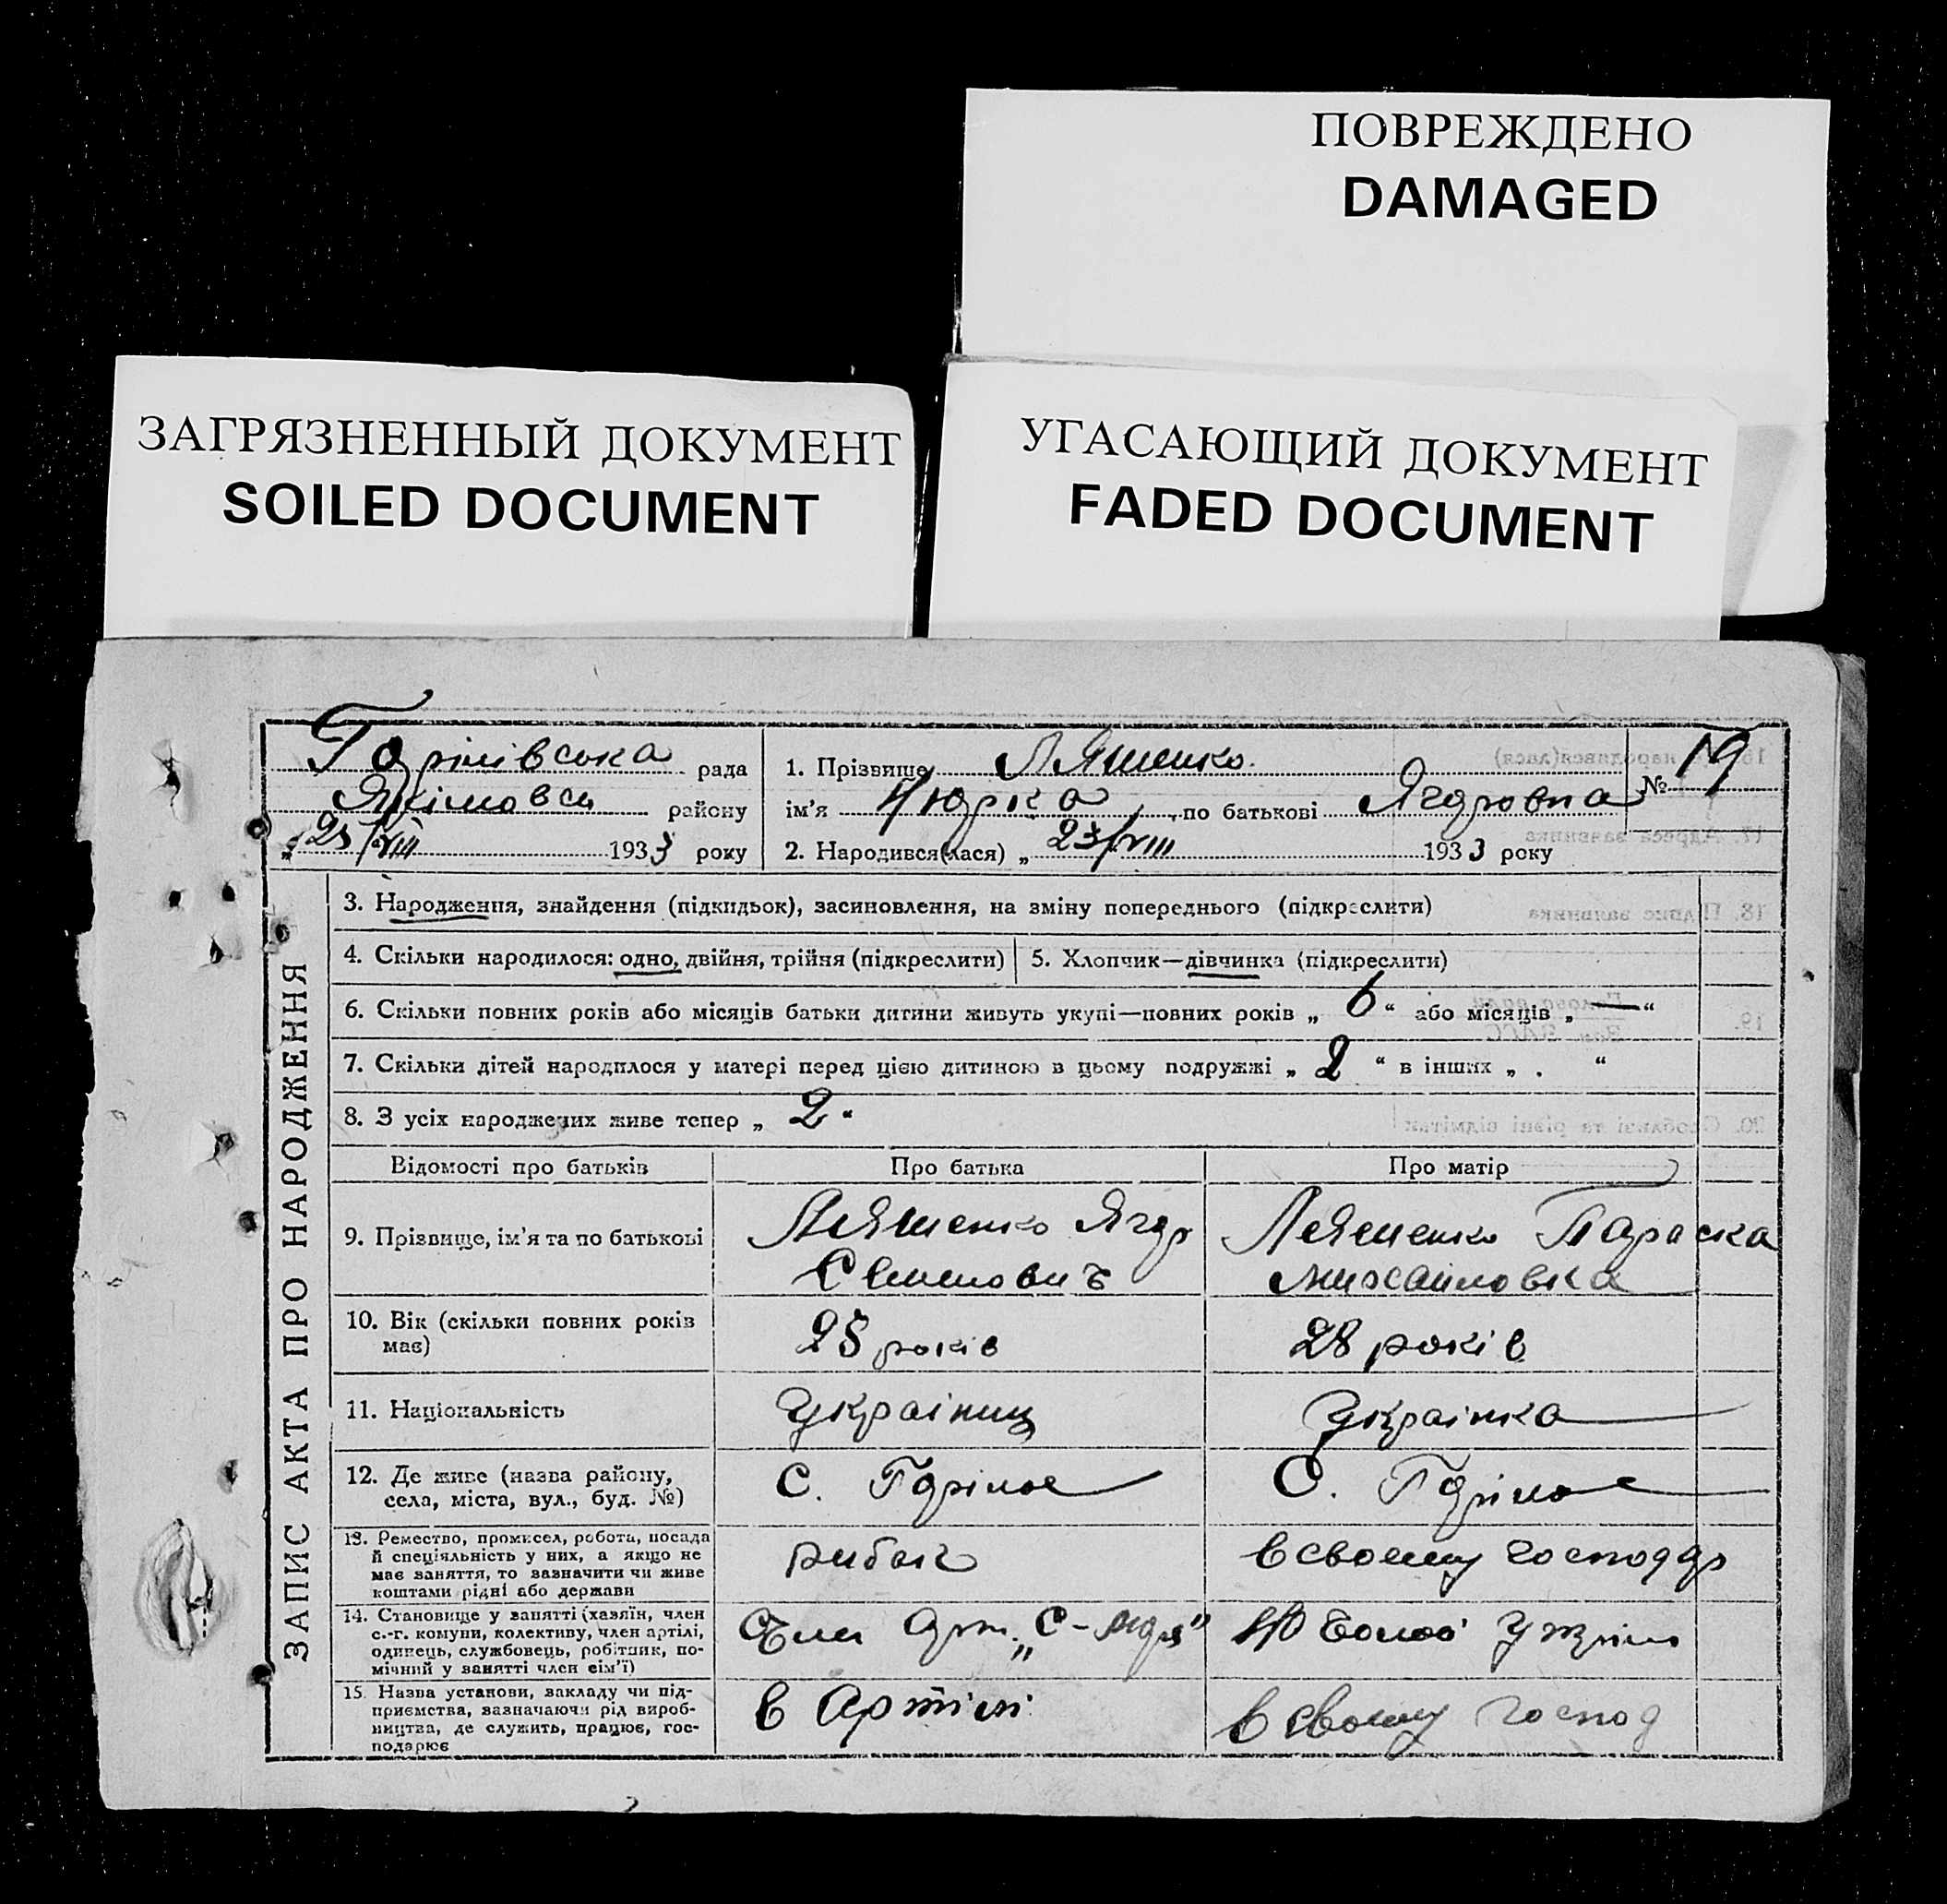 ПОВРЕЖДЕНО
DAMAGED
ЗАГРЯЗНЕННЫЙ ДОКУМЕНТ
SOILED DOCUMENT
УГАСАЮЩИЙ ДОКУМЕНТ
FADED DOCUMENT
ЗАПИС АКТА ПРО НАРОДЖЕННЯ
рада
району
„ 23/VIII 1933 року
1. Прізвище Ляшенко
№ 19
ім'я Нюрка по батькові Ягоровна
2. Народився(лася) „ 23/VIII 1933 року
3. Народження, знайдення (підкидьок), засиновлення, на зміну попереднього (підкреслити)
4. Скільки народилося: одно, двійня, трійня (підкреслити)
5. Хлопчик—дівчинка (підкреслити)
6. Скільки повних років або місяців батьки дитини живуть укупі—повних років „ 6 “ або місяців „ — “
7. Скільки дітей народилося у матері перед цією дитиною в цьому подружжі „ 2 “ в інших „ . “
8. З усіх народжених живе тепер „ 2 “
Відомості про батьків
Про батька
Про матір
9. Прізвище, ім'я та по батькові
Ляшенко Ягор
Семенович
Ляшенко Параска
Михайловка
10. Вік (скільки повних років
має)
25 років
28 років
11. Національність
Украіниц
Украінка
12. Де живе (назва району,
села, міста, вул., буд. №)
С.
С.
13. Ремество, промисел, робота, посада
й спеціяльність у них, а якщо не
має заняття, то зазначити чи живе
коштами рідні або держави
рибак
в своему господар
14. Становище у занятті (хазяїн, член
с.-г. комуни, колективу, член артілі,
одинець, службовець, робітник, по-
мічний у занятті член сім'ї)
Член Арт. „С-
15. Назва установи, закладу чи під-
приємства, зазначаючи рід вироб-
ництва, де служить, працює, гос-
подарює
в Артілі
в своему господ